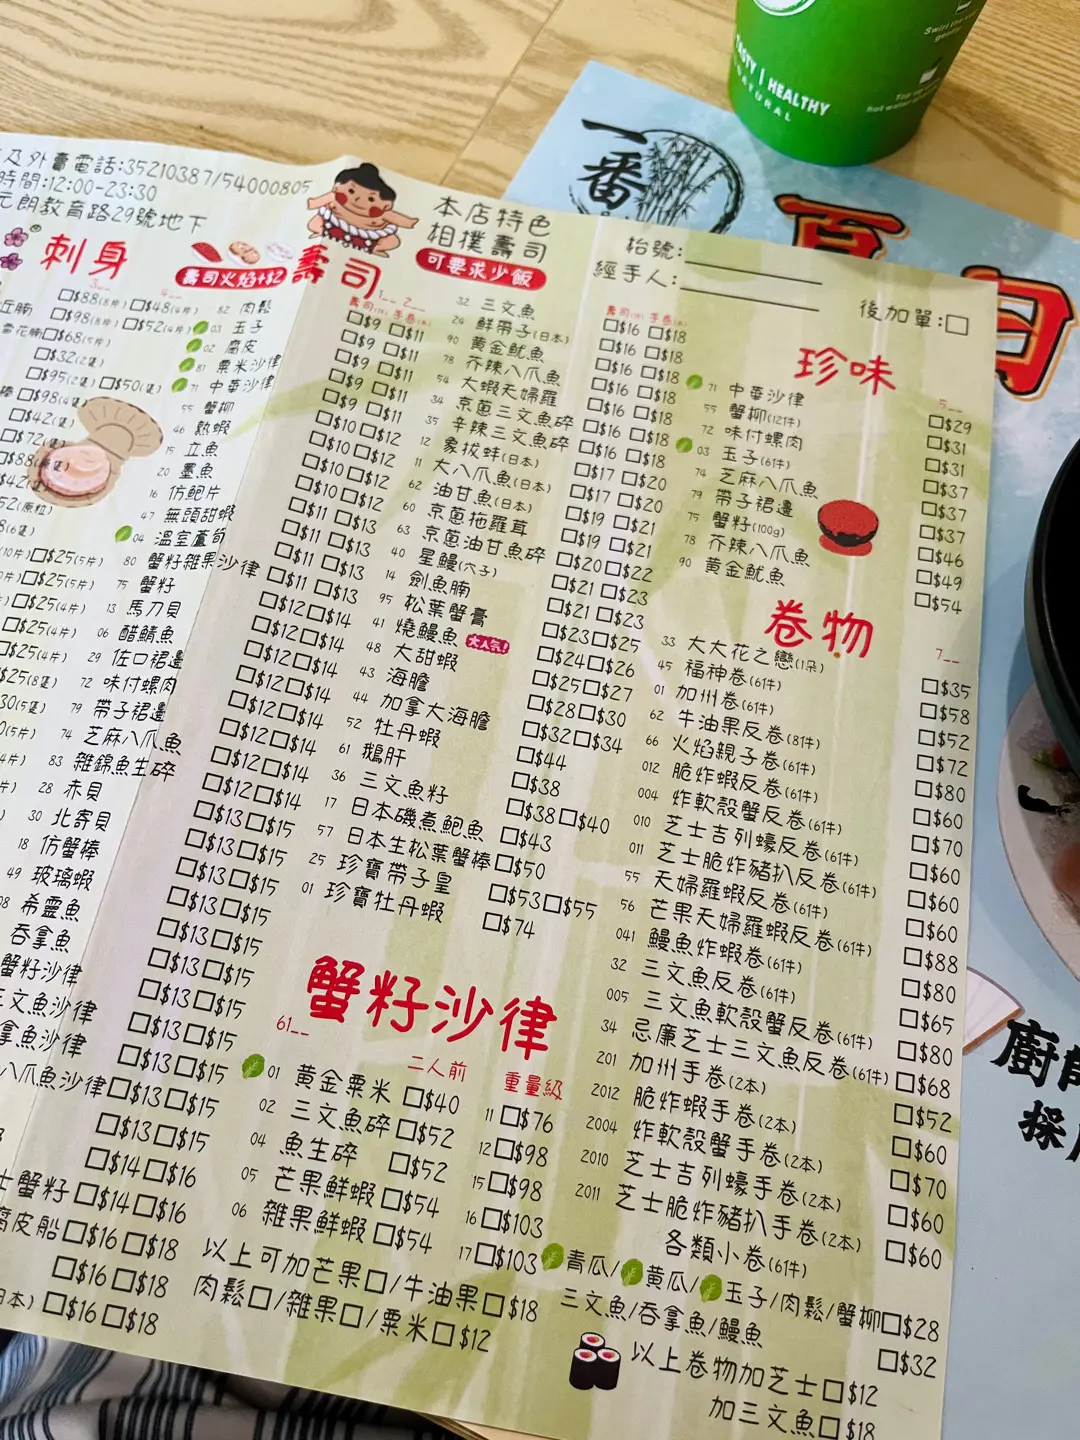 及外賣電話:35210387/54000805
時間:12:00-23:30
元朗教育路29號地下
本店特色
相撲壽司
可要求少飯
枱號:
經手人:
後加單:□
刺身
壽司火焰+$2
3__ 4__
□$88(8片) □$48(4片)
□$98(8片) □$52(4片)
雪花腩□$68(5片)
□$32(2隻)
□$95(2隻) □$50(隻)
棒□$98(4隻)
□$42(隻)
□$72(隻)
□$88
□$25(5片)
□$25(5片)
□$25(4片)
□$25(4片)
□$25(4片)
□$25(8隻)
壽司
1__ 2__
壽司(件) 手卷(本)
82 肉鬆
03 玉子
02 腐皮
81 粟米沙律
71 中華沙律
55 蟹柳
46 熟蝦
15 立魚
20 墨魚
16 仿鮑片
47 無頭甜蝦
04 溫室蘆筍
80 蟹籽雜果沙律
75 蟹籽
13 馬刀貝
06 醋鯖魚
29 佐口裙邊
72 味付螺肉
79 帶子裙邊
74 芝麻八爪魚
83 雜錦魚生碎
28 赤貝
30 北寄貝
18 仿蟹棒
49 玻璃蝦
08 希靈魚
吞拿魚
蟹籽沙律
三文魚沙律
拿魚沙律
八爪魚沙律
士蟹籽
腐皮船
□$9 □$11
□$9 □$11
□$9 □$11
□$9 □$11
□$9 □$11
□$10□$12
□$10□$12
□$10□$12
□$10□$12
□$11 □$13
□$11 □$13
□$11 □$13
□$12□$14
□$12□$14
□$12□$14
□$12□$14
□$12□$14
□$12□$14
□$12□$14
□$12□$14
□$13□$15
□$13□$15
□$13□$15
□$13□$15
□$13□$15
□$13□$15
□$13□$15
□$13□$15
□$13□$15
□$13□$15
□$14□$16
□$14□$16
□$16□$18
□$16□$18
□$16□$18
壽司(件) 手卷(本)
32 三文魚 □$16 □$18
24 鮮帶子(日本) □$16 □$18
90 黃金魷魚 □$16 □$18
78 芥辣八爪魚 □$16 □$18
54 大蝦天婦羅 □$16 □$18
34 京蔥三文魚碎 □$16 □$18
35 辛辣三文魚碎 □$17 □$20
12 象拔蚌(日本) □$17 □$20
11 大八爪魚(日本) □$19 □$21
62 油甘魚(日本) □$19 □$21
60 京蔥拖羅茸 □$20□$22
63 京蔥油甘魚碎 □$21 □$23
40 星鰻(穴子) □$21 □$23
14 劍魚腩 □$23□$25
95 松葉蟹膏 □$24□$26
41 燒鰻魚 大人氣! □$25□$27
48 大甜蝦 □$28□$30
43 海膽 □$32□$34
44 加拿大海膽 □$44
52 牡丹蝦 □$38
61 鵝肝 □$38□$40
36 三文魚籽 □$43
17 日本磯煮鮑魚 □$50
57 日本生松葉蟹棒 □$53□$55
25 珍寶帶子皇 □$74
01 珍寶牡丹蝦
蟹籽沙律
61__ 二人前 重量級
01 黃金粟米 □$40 11 □$76
02 三文魚碎 □$52 12□$98
04 魚生碎 □$52 15□$98
05 芒果鮮蝦 □$54 16□$103
06 雜果鮮蝦 □$54 17□$103
以上可加芒果□/牛油果□$18
肉鬆□/雜果□/粟米□$12
珍味
5__
71 中華沙律 □$29
55 蟹柳(12件) □$31
72 味付螺肉 □$31
03 玉子(6件) □$37
74 芝麻八爪魚 □$37
79 帶子裙邊 □$37
75 蟹籽(100g) □$46
78 芥辣八爪魚 □$49
90 黃金魷魚 □$54
卷物
7__
33 大大花之戀(1朵) □$35
45 福神卷(6件) □$58
01 加州卷(6件) □$52
62 牛油果反卷(8件) □$72
66 火焰親子卷(6件) □$80
012 脆炸蝦反卷(6件) □$60
004 炸軟殼蟹反卷(6件) □$70
010 芝士吉列蠔反卷(6件) □$60
011 芝士脆炸豬扒反卷(6件) □$60
55 天婦羅蝦反卷(6件) □$60
56 芒果天婦羅蝦反卷(6件) □$88
041 鰻魚炸蝦卷(6件) □$80
32 三文魚反卷(6件) □$65
005 三文魚軟殼蟹反卷(6件) □$80
34 忌廉芝士三文魚反卷(6件) □$68
201 加州手卷(2本) □$52
2012 脆炸蝦手卷(2本) □$60
2004 炸軟殼蟹手卷(2本) □$70
2010 芝士吉列蠔手卷(2本) □$60
2011 芝士脆炸豬扒手卷(2本) □$60
各類小卷(6件)
青瓜/黃瓜/玉子/肉鬆/蟹柳□$28
三文魚/吞拿魚/鰻魚 □$32
以上卷物加芝士□$12
加三文魚□$18
TASTY | HEALTHY
NATURAL
一番
廚師
採